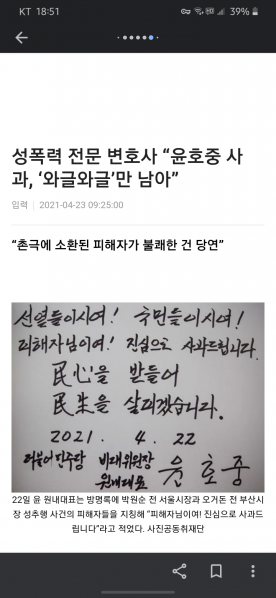 KT 18:51
39%
성폭력 전문 변호사 “윤호중 사
과, ‘와글와글’만 남아”
입력 | 2021-04-23 09:25:00
“촌극에 소환된 피해자가 불쾌한 건 당연”
선열들이시여! 국민들이시여!
피해자님이여! 진심으로 사과드립니다.
民心을 받들어
民生을 살피겠습니다.
2021. 4. 22
더불어민주당 비대위원장
원내대표 윤호중
22일 윤 원내대표는 방명록에 박원순 전 서울시장과 오거돈 전 부산시
장 성추행 사건의 피해자들을 지칭해 “피해자님이여! 진심으로 사과드
립니다”라고 적었다. 사진공동취재단